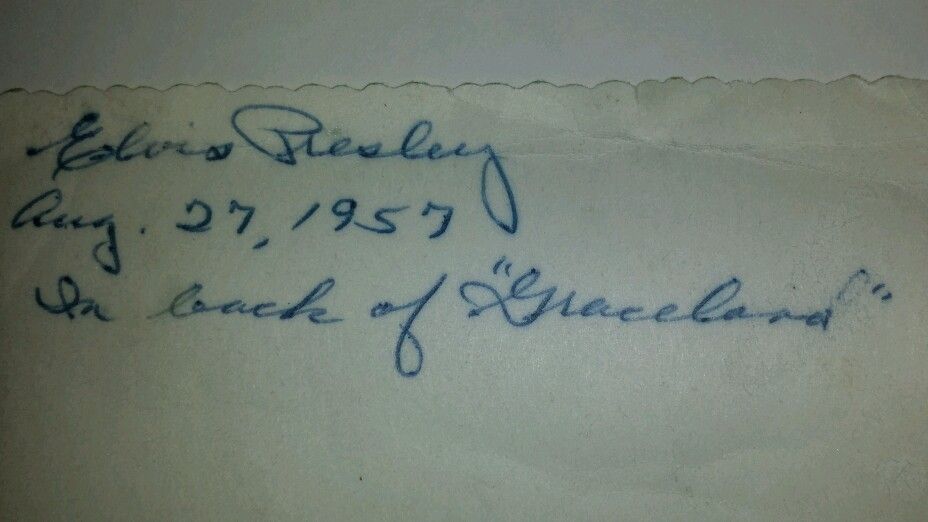 Elvis Presley
Aug. 27, 1957
In back of "Graceland"